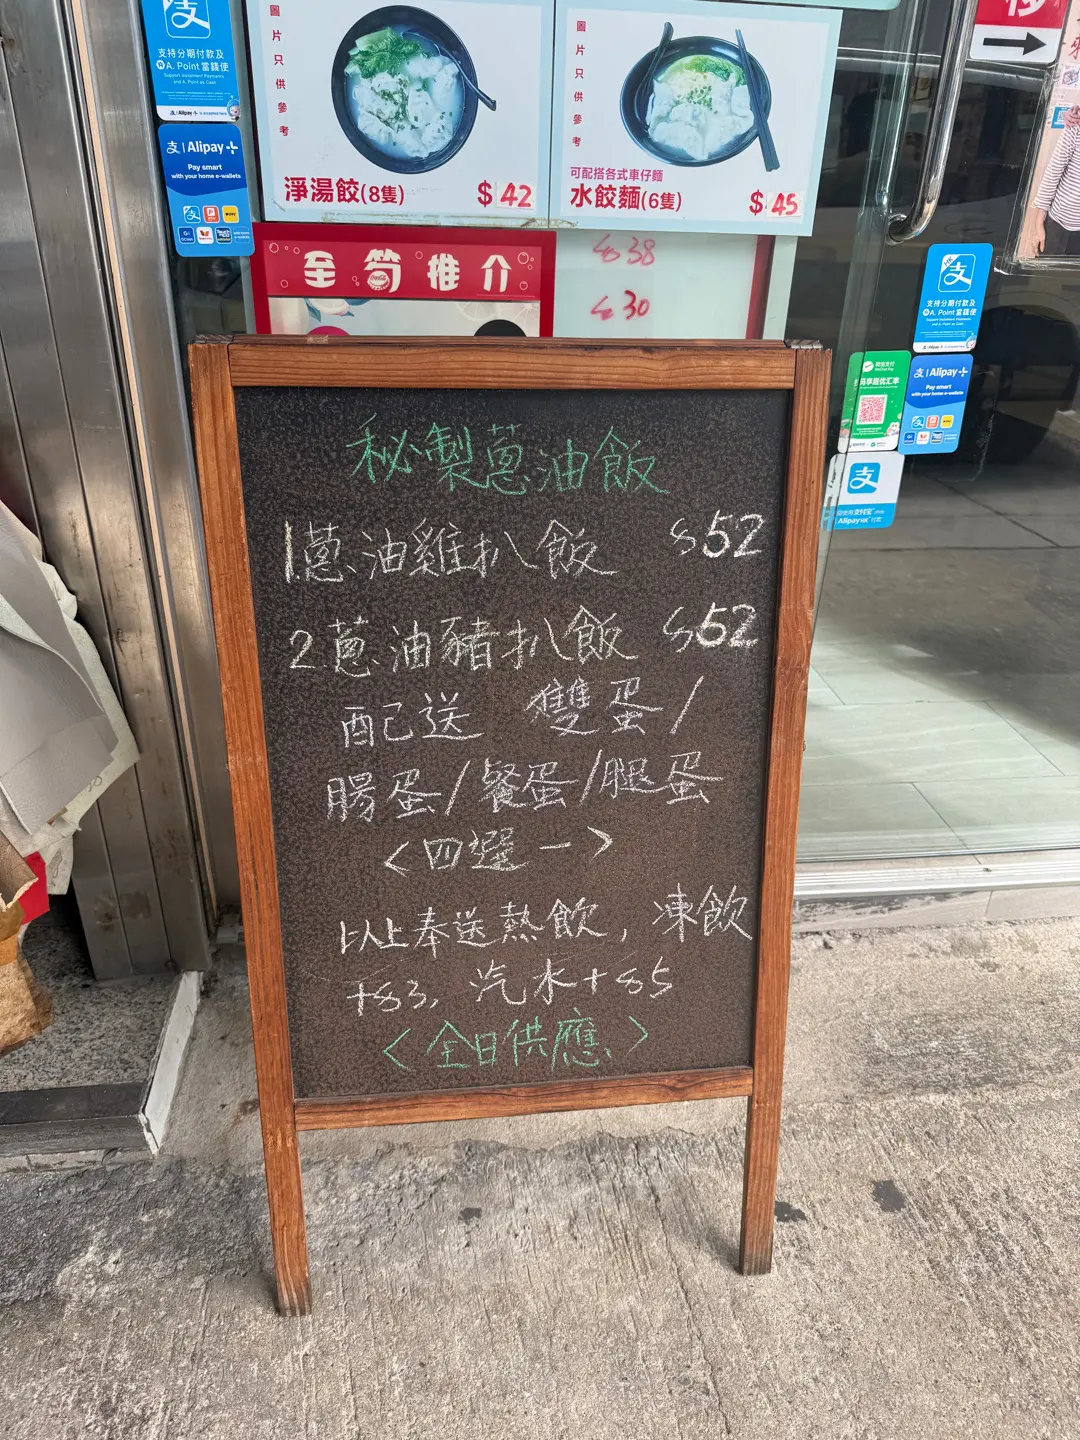 支持分期付款及
A. Point 當錢使
Support Instalment Payments
and A. Point as Cash
Alipay+
Pay smart
with your home e-wallets
圖片只供參考
淨湯餃(8隻) $42
圖片只供參考
可配搭各式車仔麵
水餃麵(6隻) $45
至筍推介
$38
$30
支持分期付款及
A. Point 當錢使
Alipay+
Pay smart
with your home e-wallets
秘製蔥油飯
1.蔥油雞扒飯 $52
2.蔥油豬扒飯 $52
配送 雙蛋/
腸蛋/餐蛋/腿蛋
<四選一>
以上奉送熱飲, 凍飲
+$3, 汽水+$5
<全日供應>